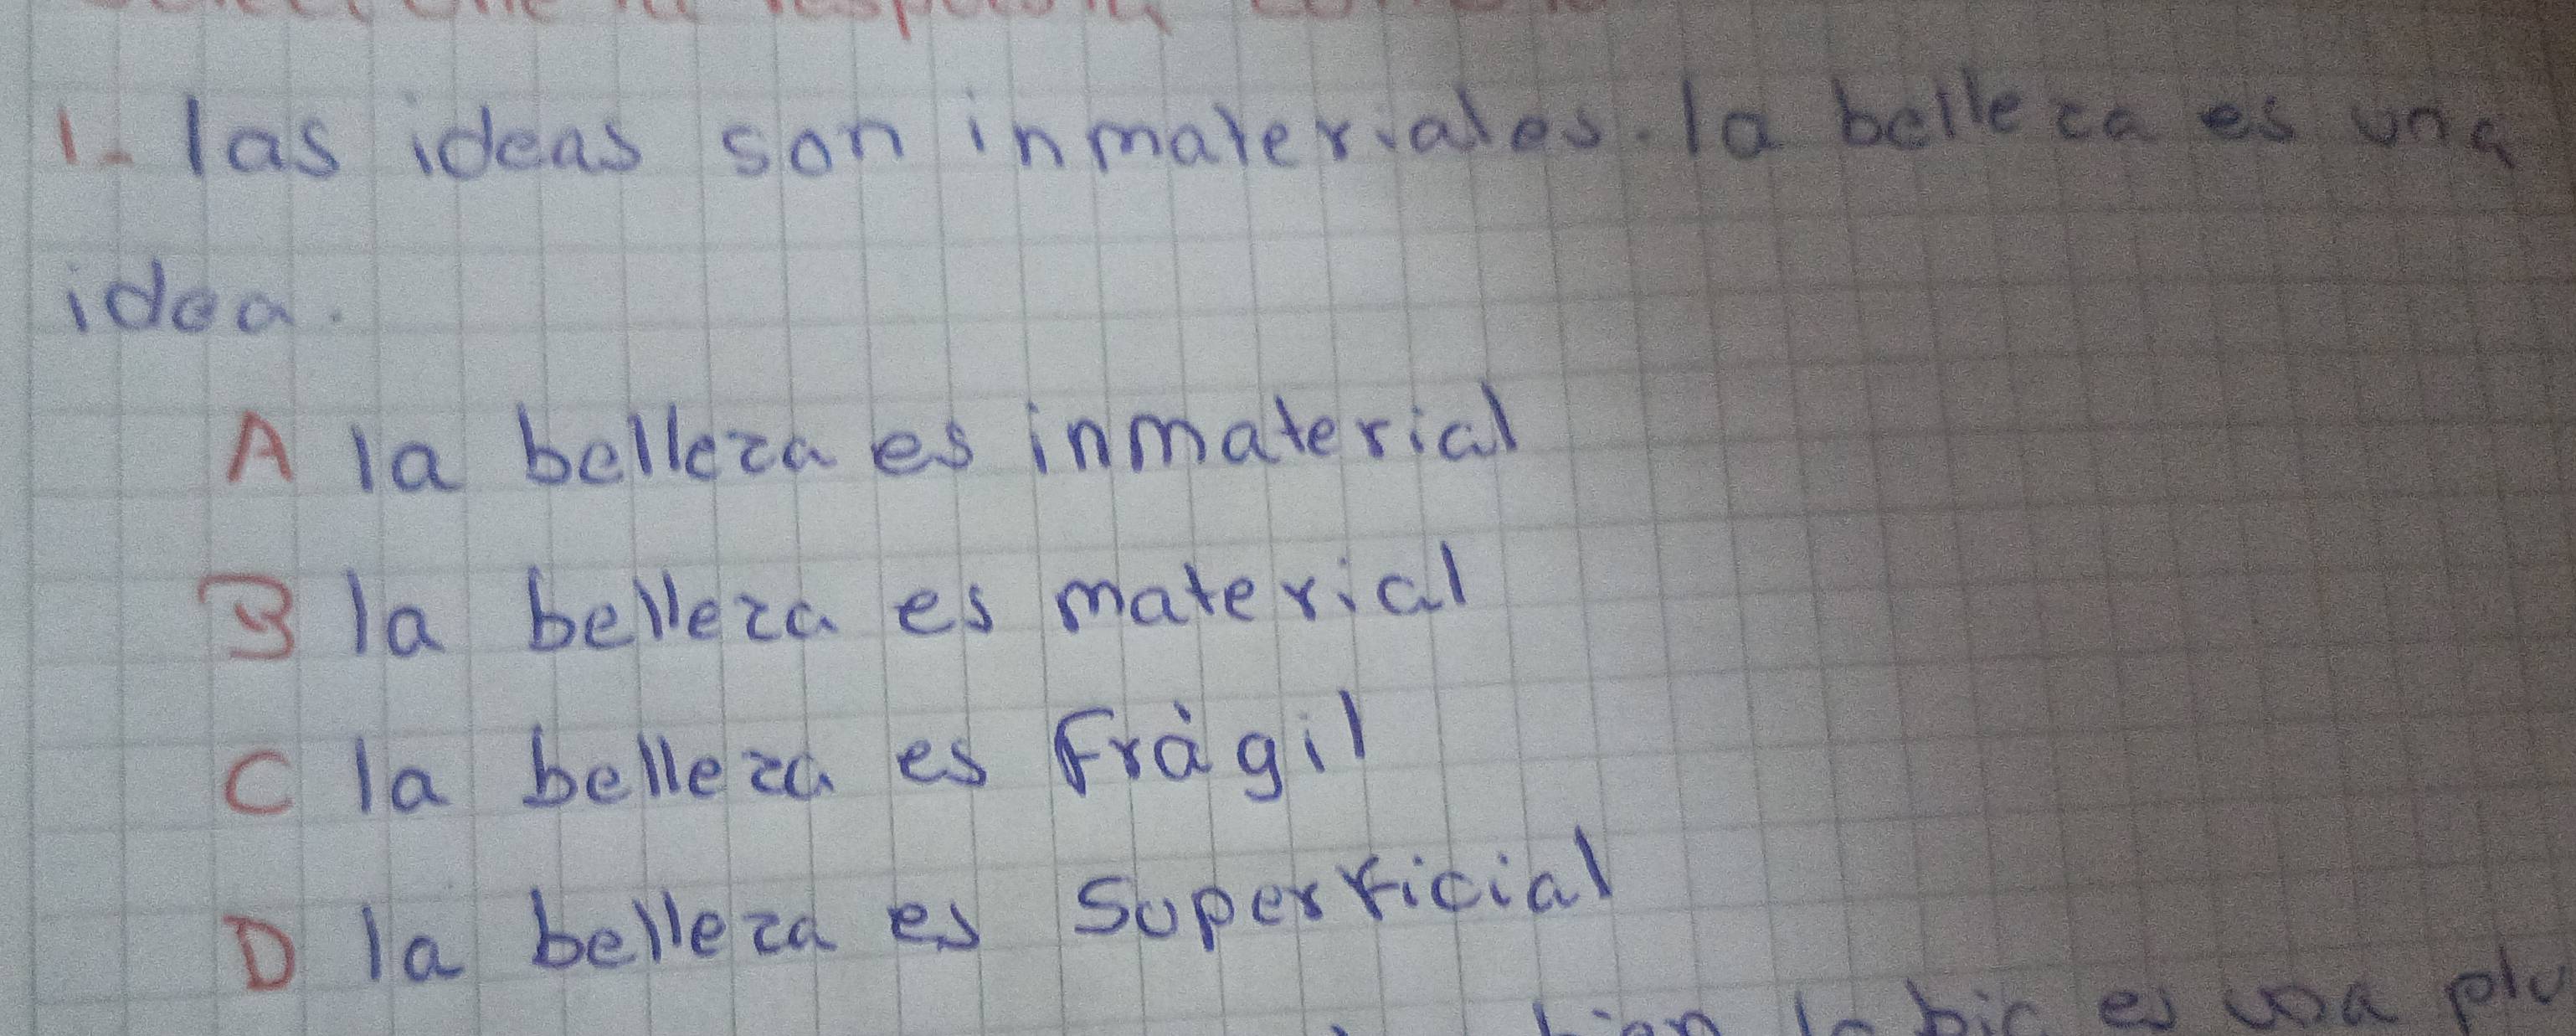 1- las ideas son inmateriales. la belleza es una
idea.
A la belleza es inmaterial
B la belleza es material
C la belleza es fràgil
D la belleza es superficial
la bic es una